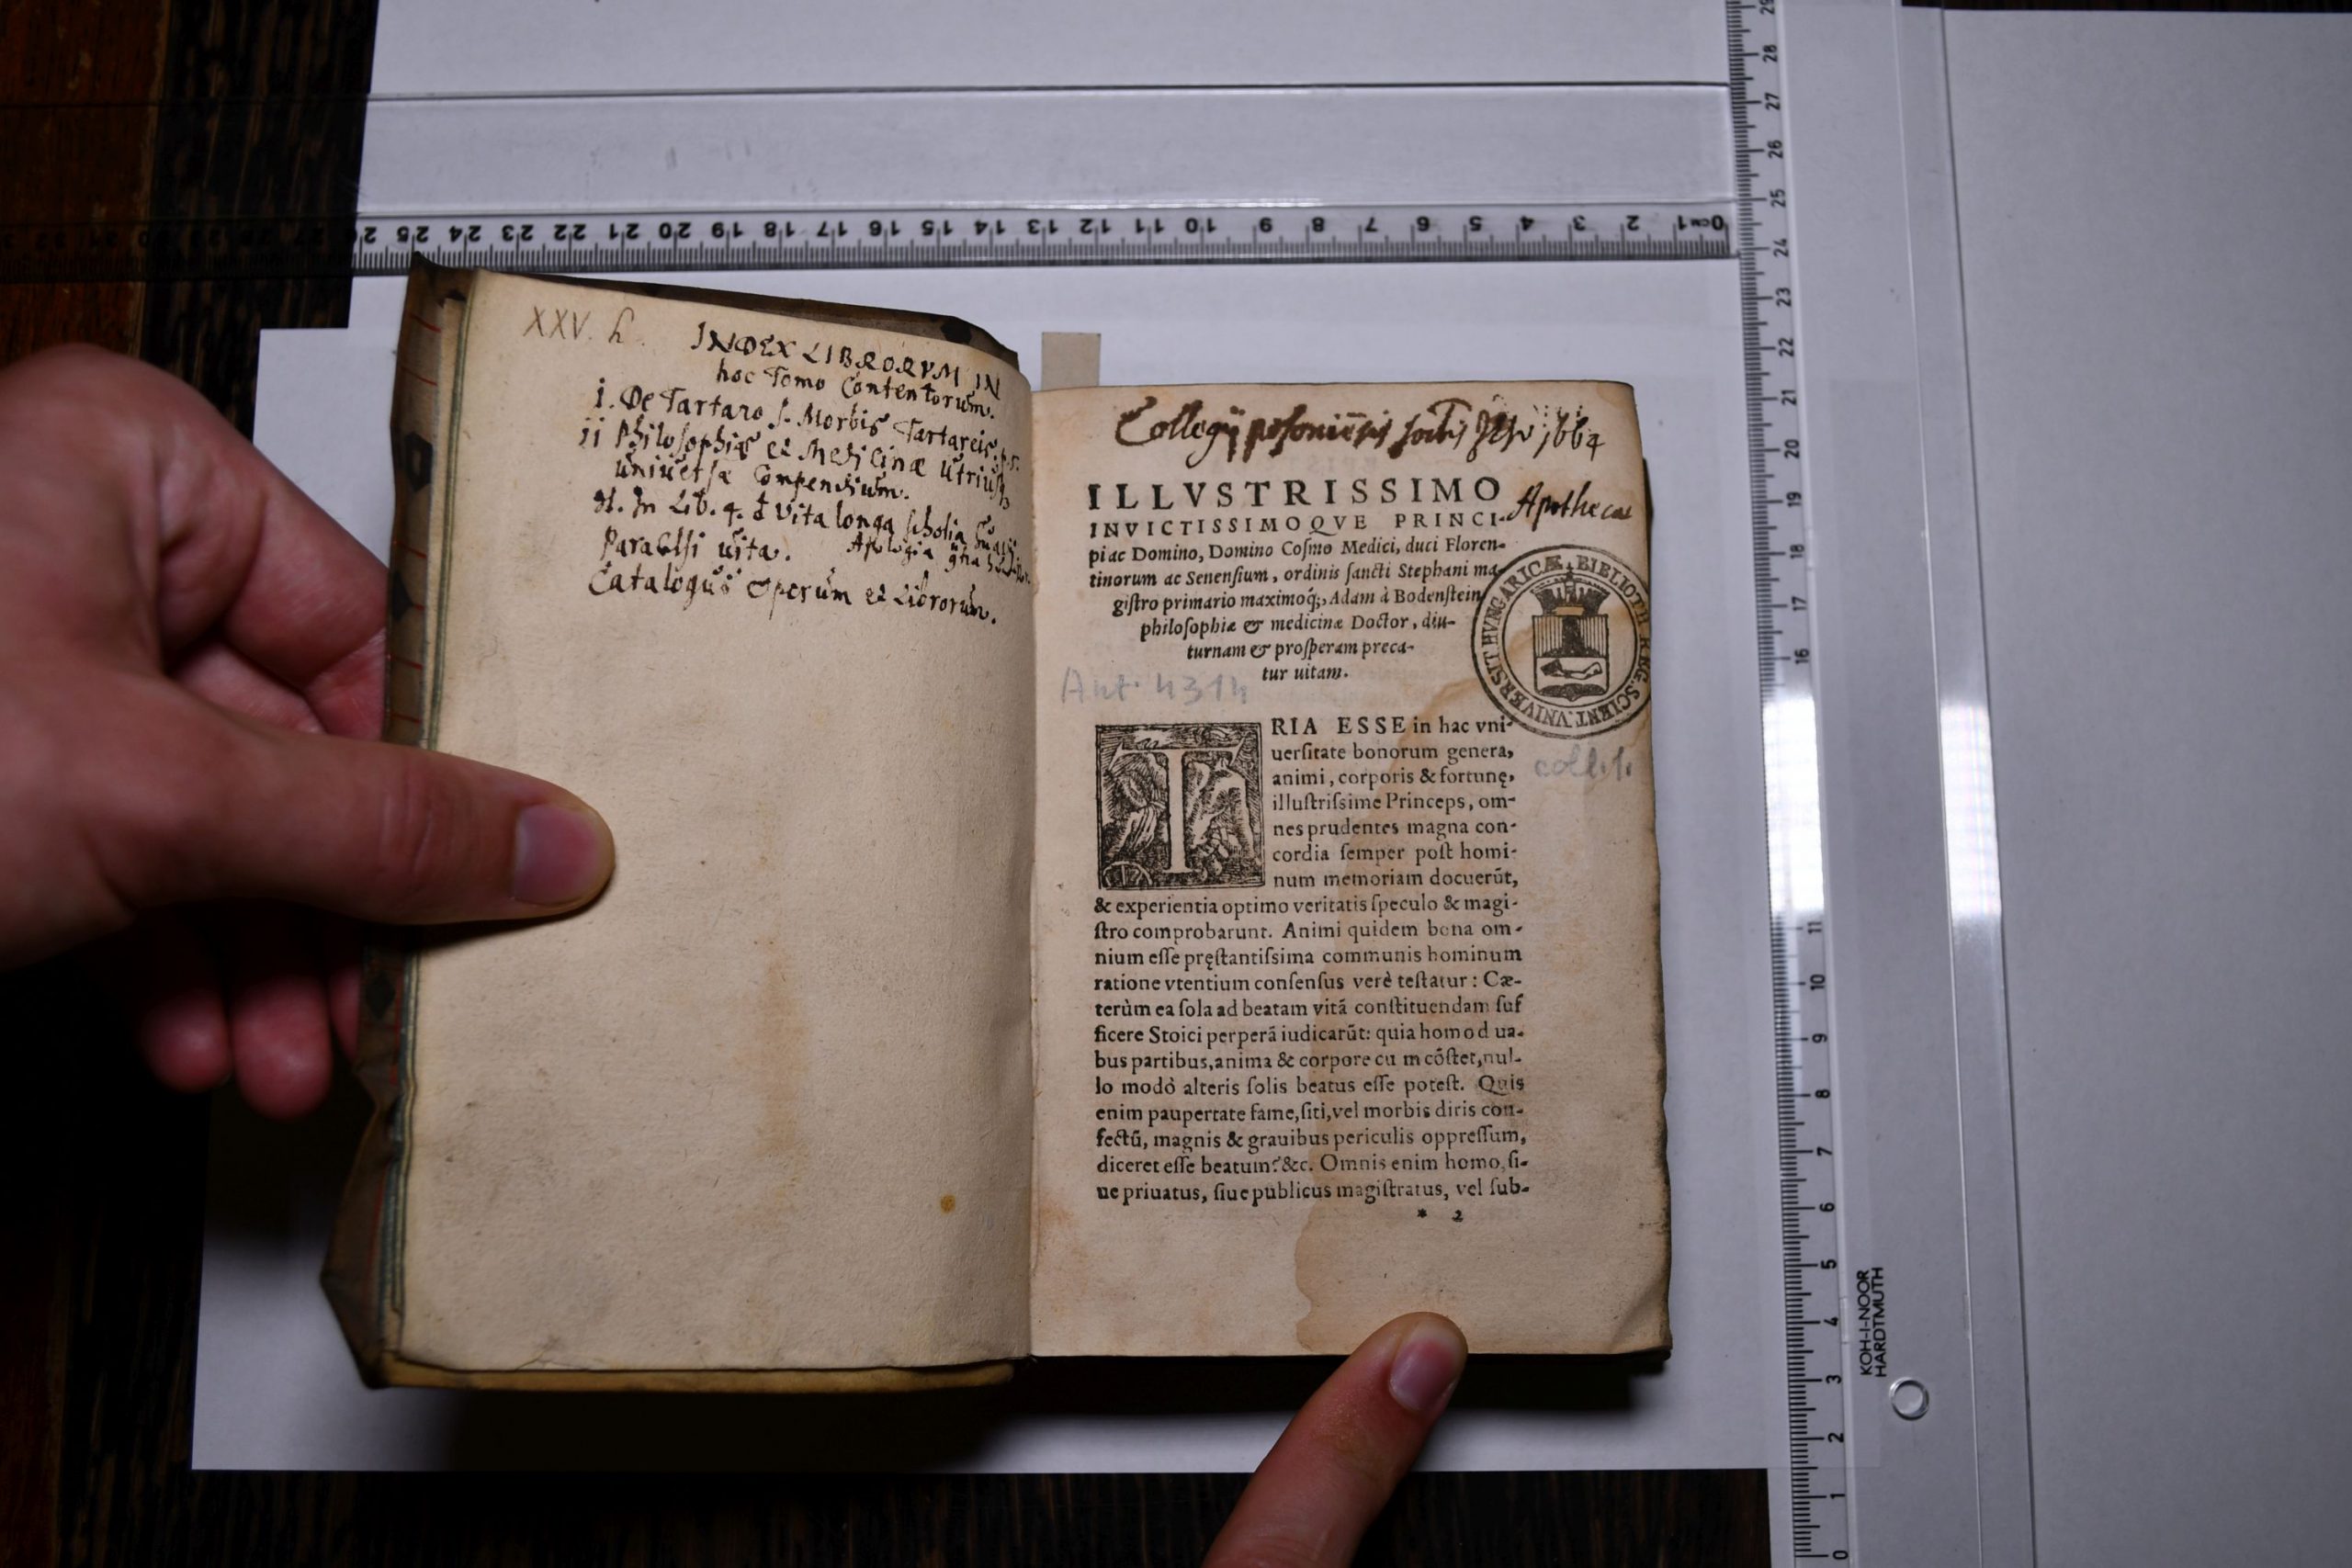 XXV. h.
INDEX LIBRORVM IN
hoc Tomo Contentorum.
i. De Tartaro s. Morbis Tartareis
ii Philosophiæ et Medicinæ utriusq
universæ Compendium.
In Lib. 4. d Vita longa scholia
Paracelsi vita. Apologia
Catalogus Operum et Librorum.
Collegij posoniēsis Soctis Jesu 1664
ILLVSTRISSIMO
Apothecae
INVICTISSIMOQVE PRINCI-
pi ac Domino, Domino Coſmo Medici, duci Floren-
tinorum ac Senenſium, ordinis ſancti Stephani ma-
giſtro primario maximoq́;, Adam à Bodenſtein
philoſophiæ & medicinæ Doctor, diu-
turnam & proſperam preca-
tur uitam.
VNIVERSIT HVNGARICÆ BIBLIOTH REG. SCIENT.
Ant. 4314
TRIA ESSE in hac vni-
uerſitate bonorum genera,
animi, corporis & fortunę,
coll. 1.
illuſtriſsime Princeps, om-
nes prudentes magna con-
cordia ſemper poſt homi-
num memoriam docuerūt,
& experientia optimo veritatis ſpeculo & magi-
ſtro comprobarunt. Animi quidem bona om-
nium eſſe pręſtantiſsima communis hominum
ratione vtentium conſenſus verè teſtatur: Cæ-
terùm ea ſola ad beatam vitā conſtituendam ſuf
ficere Stoici perperā iudicarūt: quia homo d ua-
bus partibus, anima & corpore cu m cōſtet, nul-
lo modò alteris ſolis beatus eſſe poteſt. Quis
enim paupertate fame, ſiti, vel morbis diris con-
fectū, magnis & grauibus periculis oppreſſum,
diceret eſſe beatum? &c. Omnis enim homo, ſi-
ue priuatus, ſiue publicus magiſtratus, vel ſub-
* 2
0cm1 2 3 4 5 6 7 8 9 10 11 12 13 14 15 16 17 18 19 20 21 22 23 24 25
29 28 27 26 25 24 23 22 21 20 19 18 17 16 11 10 9 8 7 6 5 4 3 2 1 0
KOH-I-NOOR
HARDTMUTH